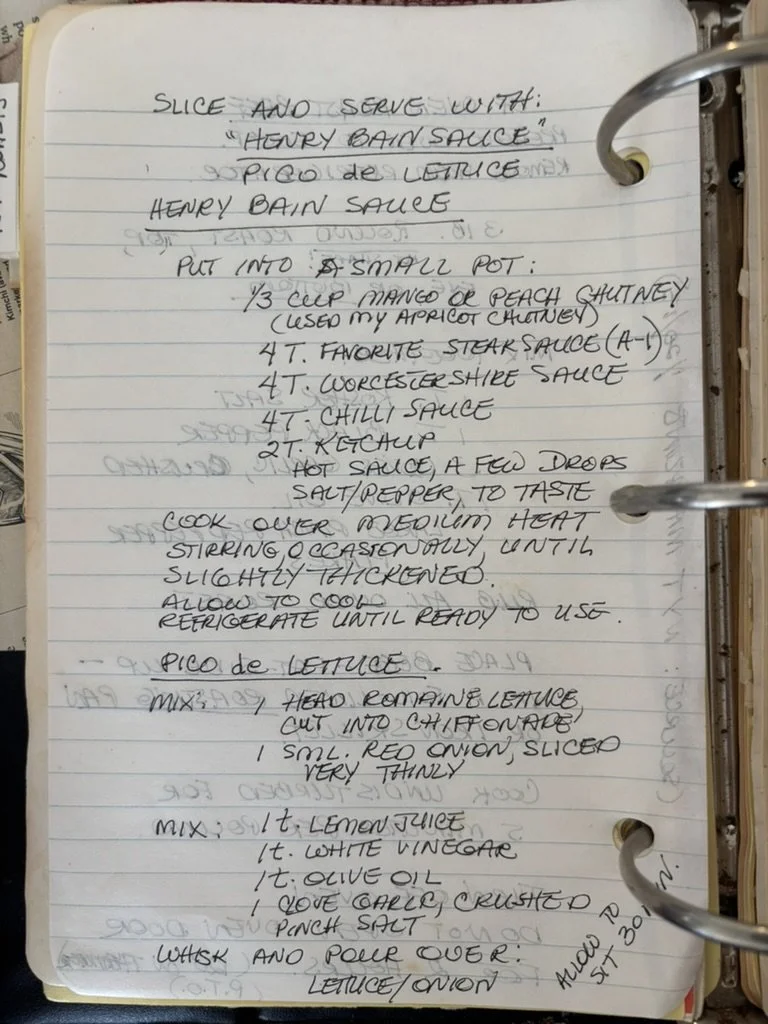 SLICE AND SERVE WITH:
"HENRY BAIN SAUCE"
PICO de LETTUCE
HENRY BAIN SAUCE
PUT INTO A SMALL POT:
1/3 CUP MANGO OR PEACH CHUTNEY
(USED MY APRICOT CHUTNEY)
4 T. FAVORITE STEAK SAUCE (A-1)
4 T. WORCESTERSHIRE SAUCE
4 T. CHILLI SAUCE
2 T. KETCHUP
HOT SAUCE, A FEW DROPS
SALT/PEPPER, TO TASTE
COOK OVER MEDIUM HEAT
STIRRING, OCCASIONALLY, UNTIL
SLIGHTLY THICKENED.
ALLOW TO COOL
REFRIGERATE UNTIL READY TO USE.
PICO de LETTUCE.
MIX: 1 HEAD ROMAINE LETTUCE,
CUT INTO CHIFFONADE
1 SML. RED ONION, SLICED
VERY THINLY
MIX: 1 t. LEMON JUICE
1 t. WHITE VINEGAR
1 t. OLIVE OIL
1 CLOVE GARLIC, CRUSHED
PINCH SALT
WHISK AND POUR OVER:
LETTUCE/ONION
ALLOW TO
SIT 30 MIN.